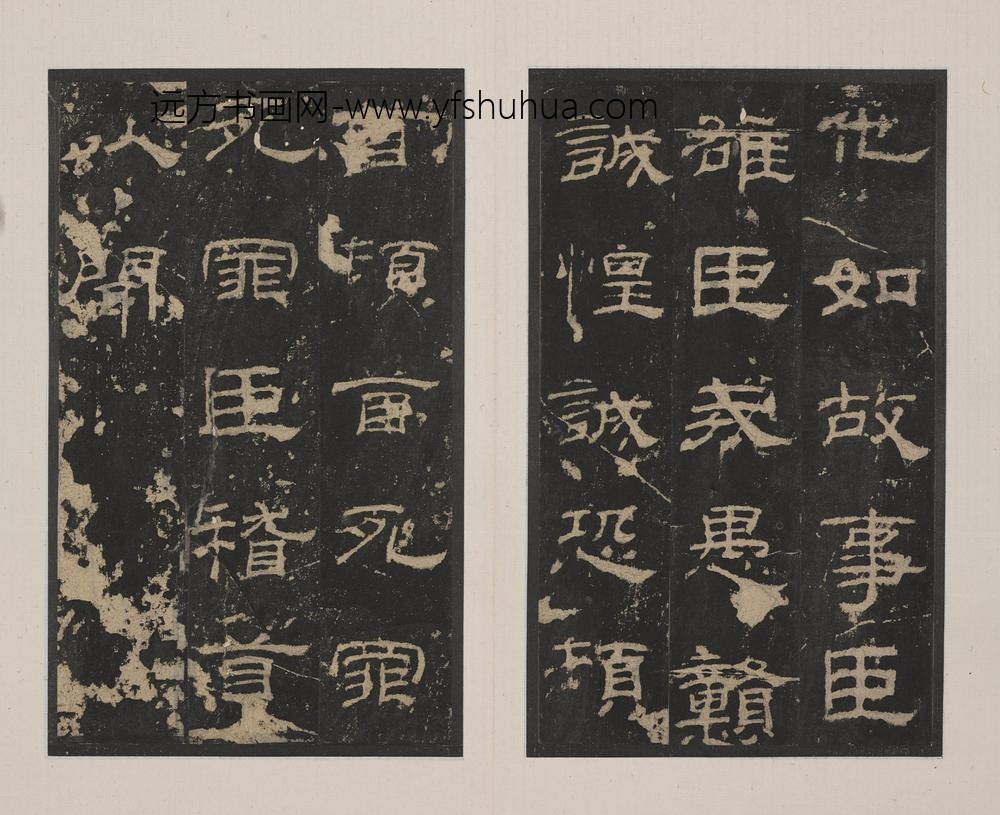 远方书画网-www.yfshuhua.com
他如故事臣
雄臣戒愚戇
誠惶誠恐頓
首頓首死罪
死罪臣稽首
以聞